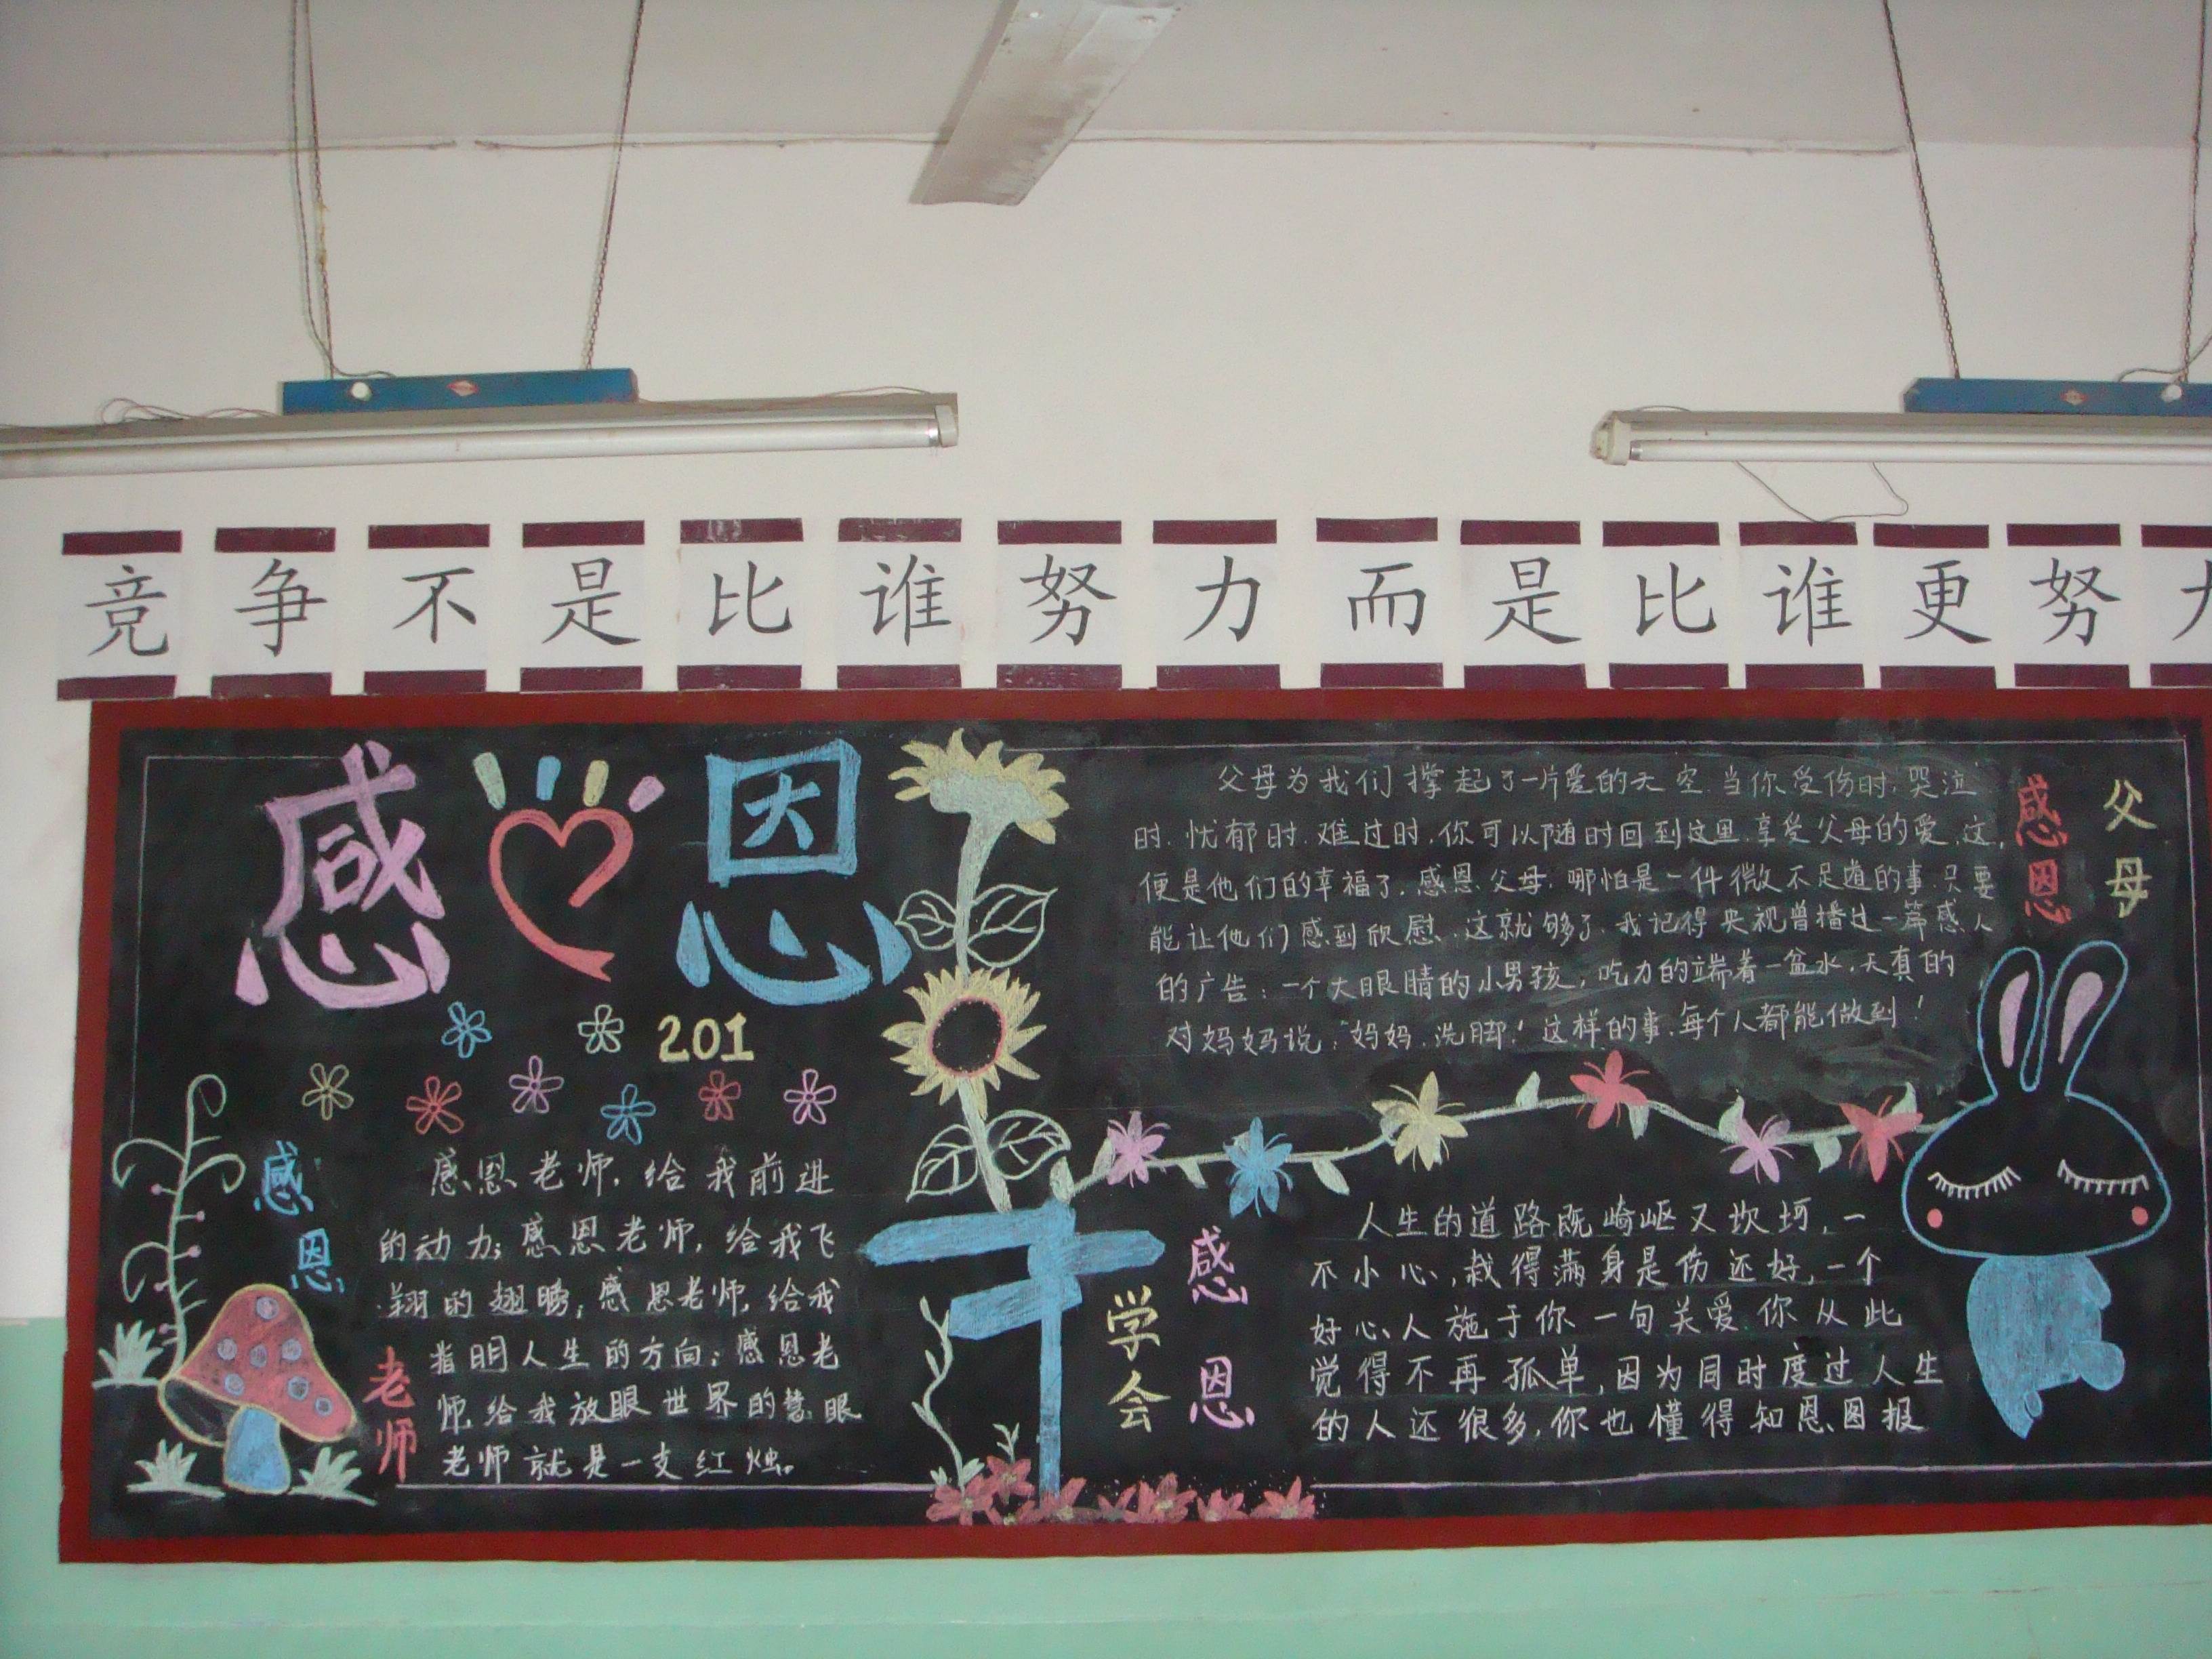 竞争不是比谁努力而是比谁更努力
感恩
201
感恩
老师
感恩老师，给我前进
的动力；感恩老师，给我飞
翔的翅膀；感恩老师，给我
指明人生的方向；感恩老
师，给我放眼世界的慧眼
老师就是一支红烛。
感恩
父母
父母为我们撑起了一片爱的天空.当你受伤时.哭泣
时.忧郁时.难过时.你可以随时回到这里.享受父母的爱.这
便是他们的幸福了.感恩.父母.哪怕是一件微不足道的事.只要
能让他们感到欣慰.这就够了.我记得央视曾播过一篇感人
的广告：一个大眼睛的小男孩，吃力的端着一盆水.天真的
对妈妈说："妈妈.洗脚！这样的事.每个人都能做到！
学会
感恩
人生的道路既崎岖又坎坷，一
不小心，栽得满身是伤还好，一个
好心人施于你一句关爱.你从此
觉得不再孤单，因为同时度过人生
的人还很多，你也懂得知恩图报